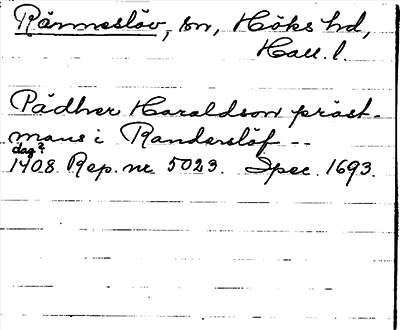 Ränneslöv, sn, Höks hd,
Hall. l.
Pädher Haraldson präst-
mans i Randerslöf --
dag?
1408. Rep. nr 5023. Spec. 1693.